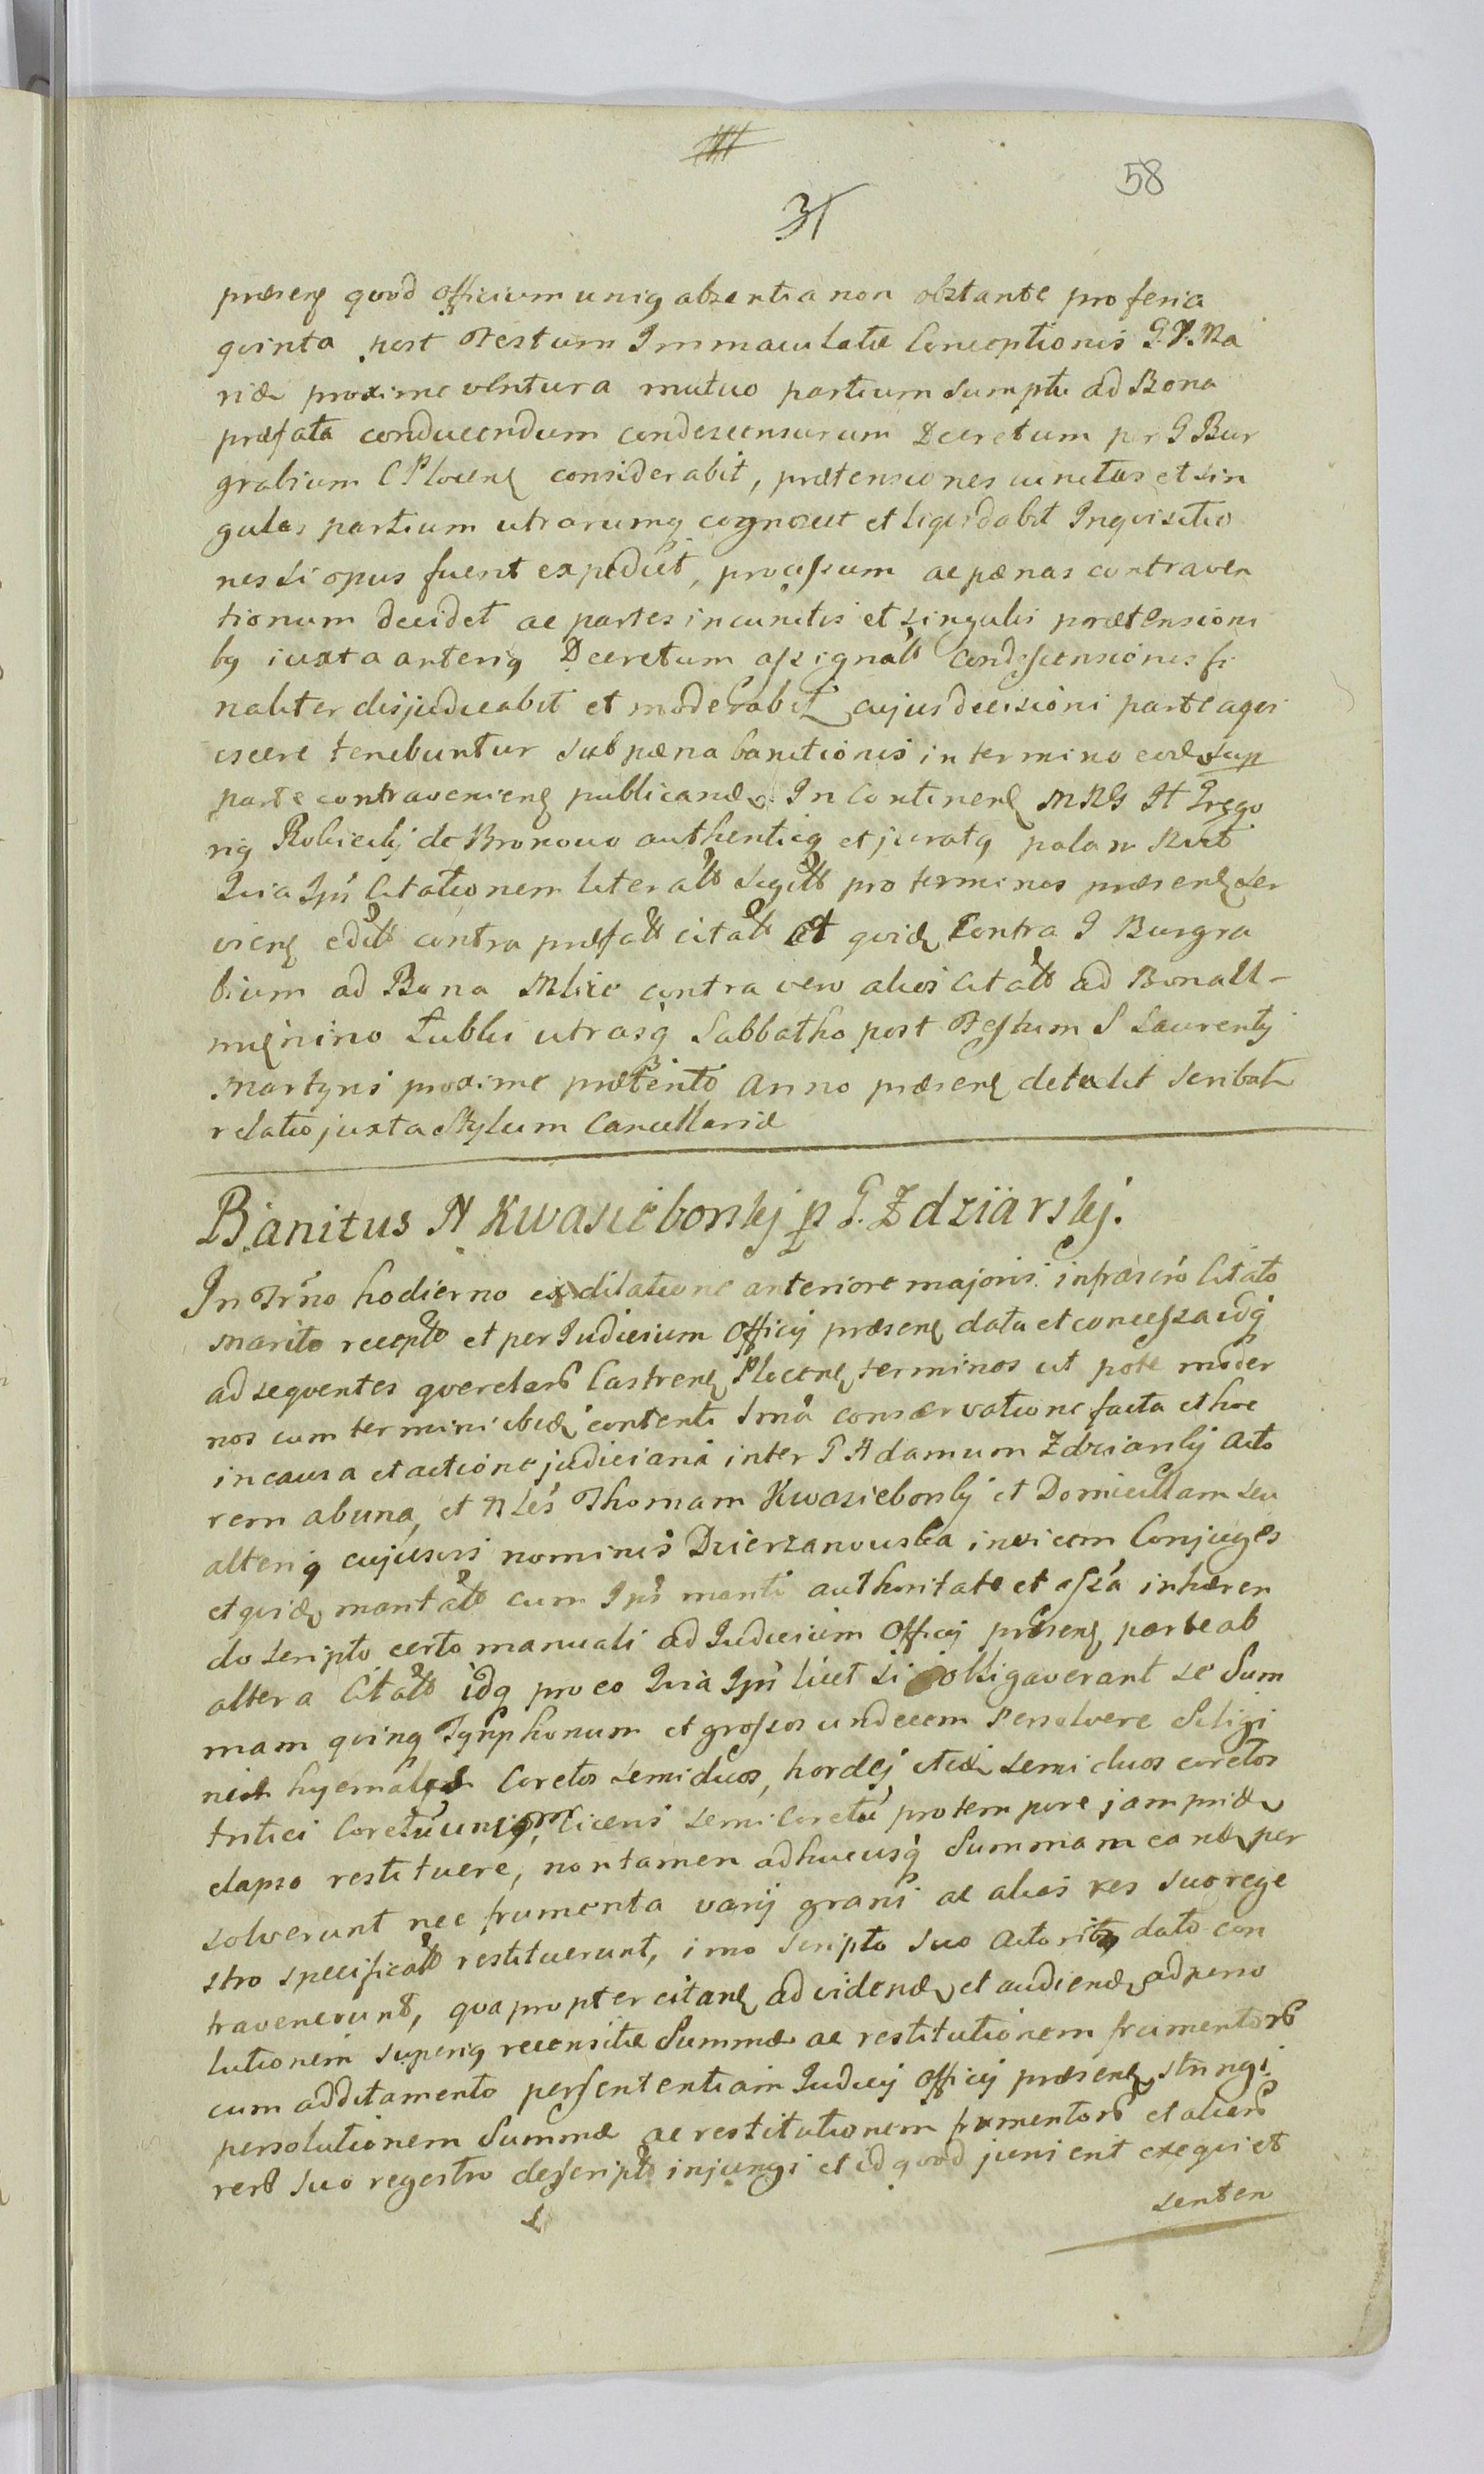 58
31
præsenꝭ qvod officium uniꝯ absentia non obstante pro feria
qvinta post Festum Immaculatæ Conceptionis B.V. Ma
riæ proxime ventura mutuo partium sumptu ad Bona
præfata conducendum condescensurum Decretum per G Bur
grabium C Plocenꝭ considerabit, prætensiones cunctas et sin
gulas partium utrarumqꝫ cognoscet et liqvidabit Inqvisitio
nes si opus fuerit expediet, processum ac pænas contraven
tionum decidet ac partes in cunctis et singulis prætensioni
bꝯ iuxta anteriꝯ Decretum assignatt condescensionis fi
naliter disjudicabit et moderabit cujus decisioni parte aqvi
escere tenebuntur sub pæna banitionis in termino eod sup
parte contravenienꝭ publicand. In Continenꝭ MRG St Grego
riꝯ Robicki de Bromowo authenticꝯ et juratꝯ palam Rectt
Qvia Ipsi Citationem literatt sigilltt pro terminos præsenꝭ ser
vienꝭ editt contra præfatt citatt et qvid Contra G Burgra
bium ad Bona Mlice contra vero alios citatt ad Bona Il-
mięnino Lubki utrasqꝫ Sabbatho post Festum S Laurentij
Martyris proxime præterito anno præsenꝭ detulit scribatr
relatio juxta Stylum Cancellariæ
Banitus N Kwasieborskj p G. Zdziarskj.
In Trno hodierno ex dilatione anteriore majoris infrascrо Citato
marito receptto et per Judicium Officij præsenꝭ data et concessa idqꝫ
ad seqventes qverelarꝝ Castrenꝭ Plocenꝭ terminos ut pote moder
nos cum termini ibid contenti Srva conservatione facta et hoc
in causa et actione judiciaria inter G Adamum Zdziarskj Acto
rem ab una, et Nles Thomam Kwasieborskj et Domicellam seu
alteriꝯ cujusvis nominis Dzierzanowska invicem Conjuges
et qvid maritatt cum Ipsi mariti authoritate et assа inhæren
do scripto certo manuali ad Judicium Officij præsenꝭ parte ab
altera Citatt idqꝫ pro eo Qvia Ipsi licet si obligaverant se Sum
mam qvinqꝫ Tynphonum et grossos undecem Persolvere Siligi
nis hyemalis Coretos semiduos, hordej itid semi duos coretos
tritici Coretū uniꝯ, Ciceris semi Coretū pro tempore jam prid
elapso restituere, non tamen adhucusqꝫ Summam eand per
solverunt nec frumenta varij grani ac alias res suo rege
stro specificatt restituerunt, imo scripto suo Actori dato con
travenerunt, qvapropter citanꝭ ad vidend et audiend ad perso
lutionem superiꝯ recensitæ Summæ ac restitutionem frumentorꝝ
cum additamento per sententiam Judicij Officij præsenꝭ stringi
persolutionem Summæ ac restitutionem frumentorꝝ et aliarꝝ
rerꝝ suo regestro descriptt injungi et id qvod juris erit exeqvi et
senten